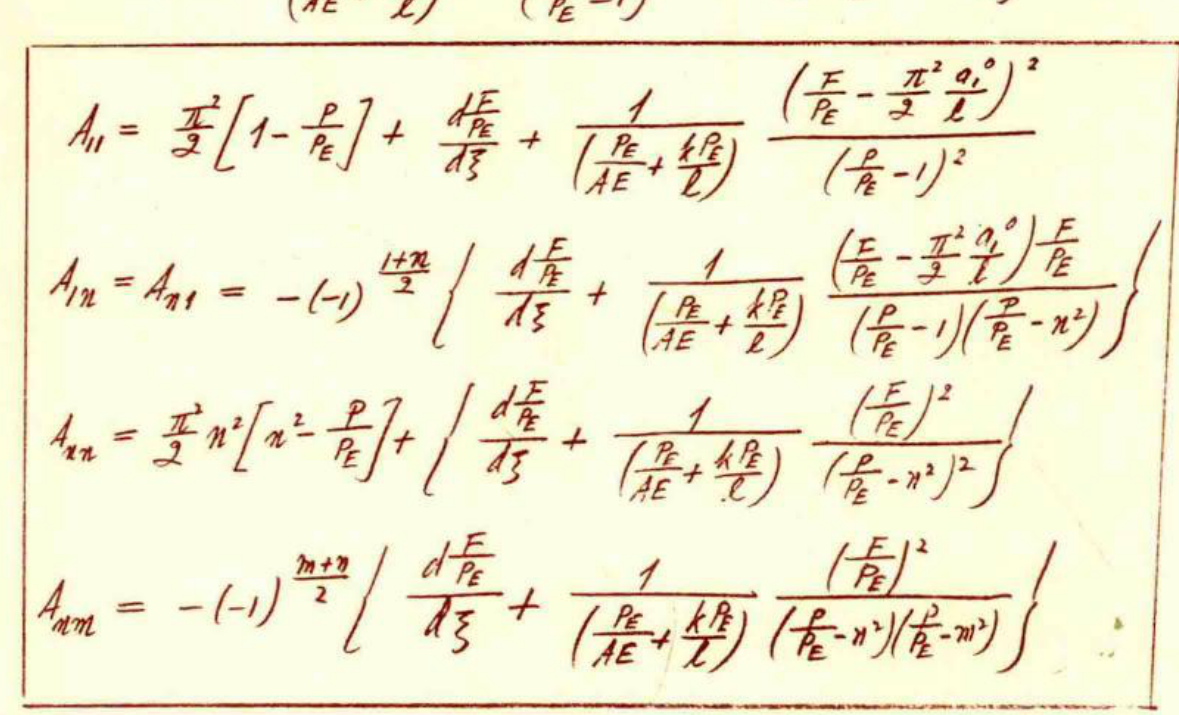 (AE   l)   (P_E - 1)
A_{11} = \frac{\pi^2}{2}\left[1 - \frac{P}{P_E}\right] + \frac{d\frac{F}{P_E}}{d\xi} + \frac{1}{\left(\frac{P_E}{AE} + \frac{kP_E}{l}\right)} \frac{\left(\frac{F}{P_E} - \frac{\pi^2}{2}\frac{a_1^0}{l}\right)^2}{\left(\frac{P}{P_E} - 1\right)^2}
A_{1n} = A_{n1} = -(-1)^{\frac{1+n}{2}} \left\{ \frac{d\frac{F}{P_E}}{d\xi} + \frac{1}{\left(\frac{P_E}{AE} + \frac{kP_E}{l}\right)} \frac{\left(\frac{F}{P_E} - \frac{\pi^2}{2}\frac{a_1^0}{l}\right)\frac{F}{P_E}}{\left(\frac{P}{P_E} - 1\right)\left(\frac{P}{P_E} - n^2\right)} \right\}
A_{nn} = \frac{\pi^2}{2} n^2 \left[n^2 - \frac{P}{P_E}\right] + \left\{ \frac{d\frac{F}{P_E}}{d\xi} + \frac{1}{\left(\frac{P_E}{AE} + \frac{kP_E}{l}\right)} \frac{\left(\frac{F}{P_E}\right)^2}{\left(\frac{P}{P_E} - n^2\right)^2} \right\}
A_{nm} = -(-1)^{\frac{m+n}{2}} \left\{ \frac{d\frac{F}{P_E}}{d\xi} + \frac{1}{\left(\frac{P_E}{AE} + \frac{kP_E}{l}\right)} \frac{\left(\frac{F}{P_E}\right)^2}{\left(\frac{P}{P_E} - n^2\right)\left(\frac{P}{P_E} - m^2\right)} \right\}